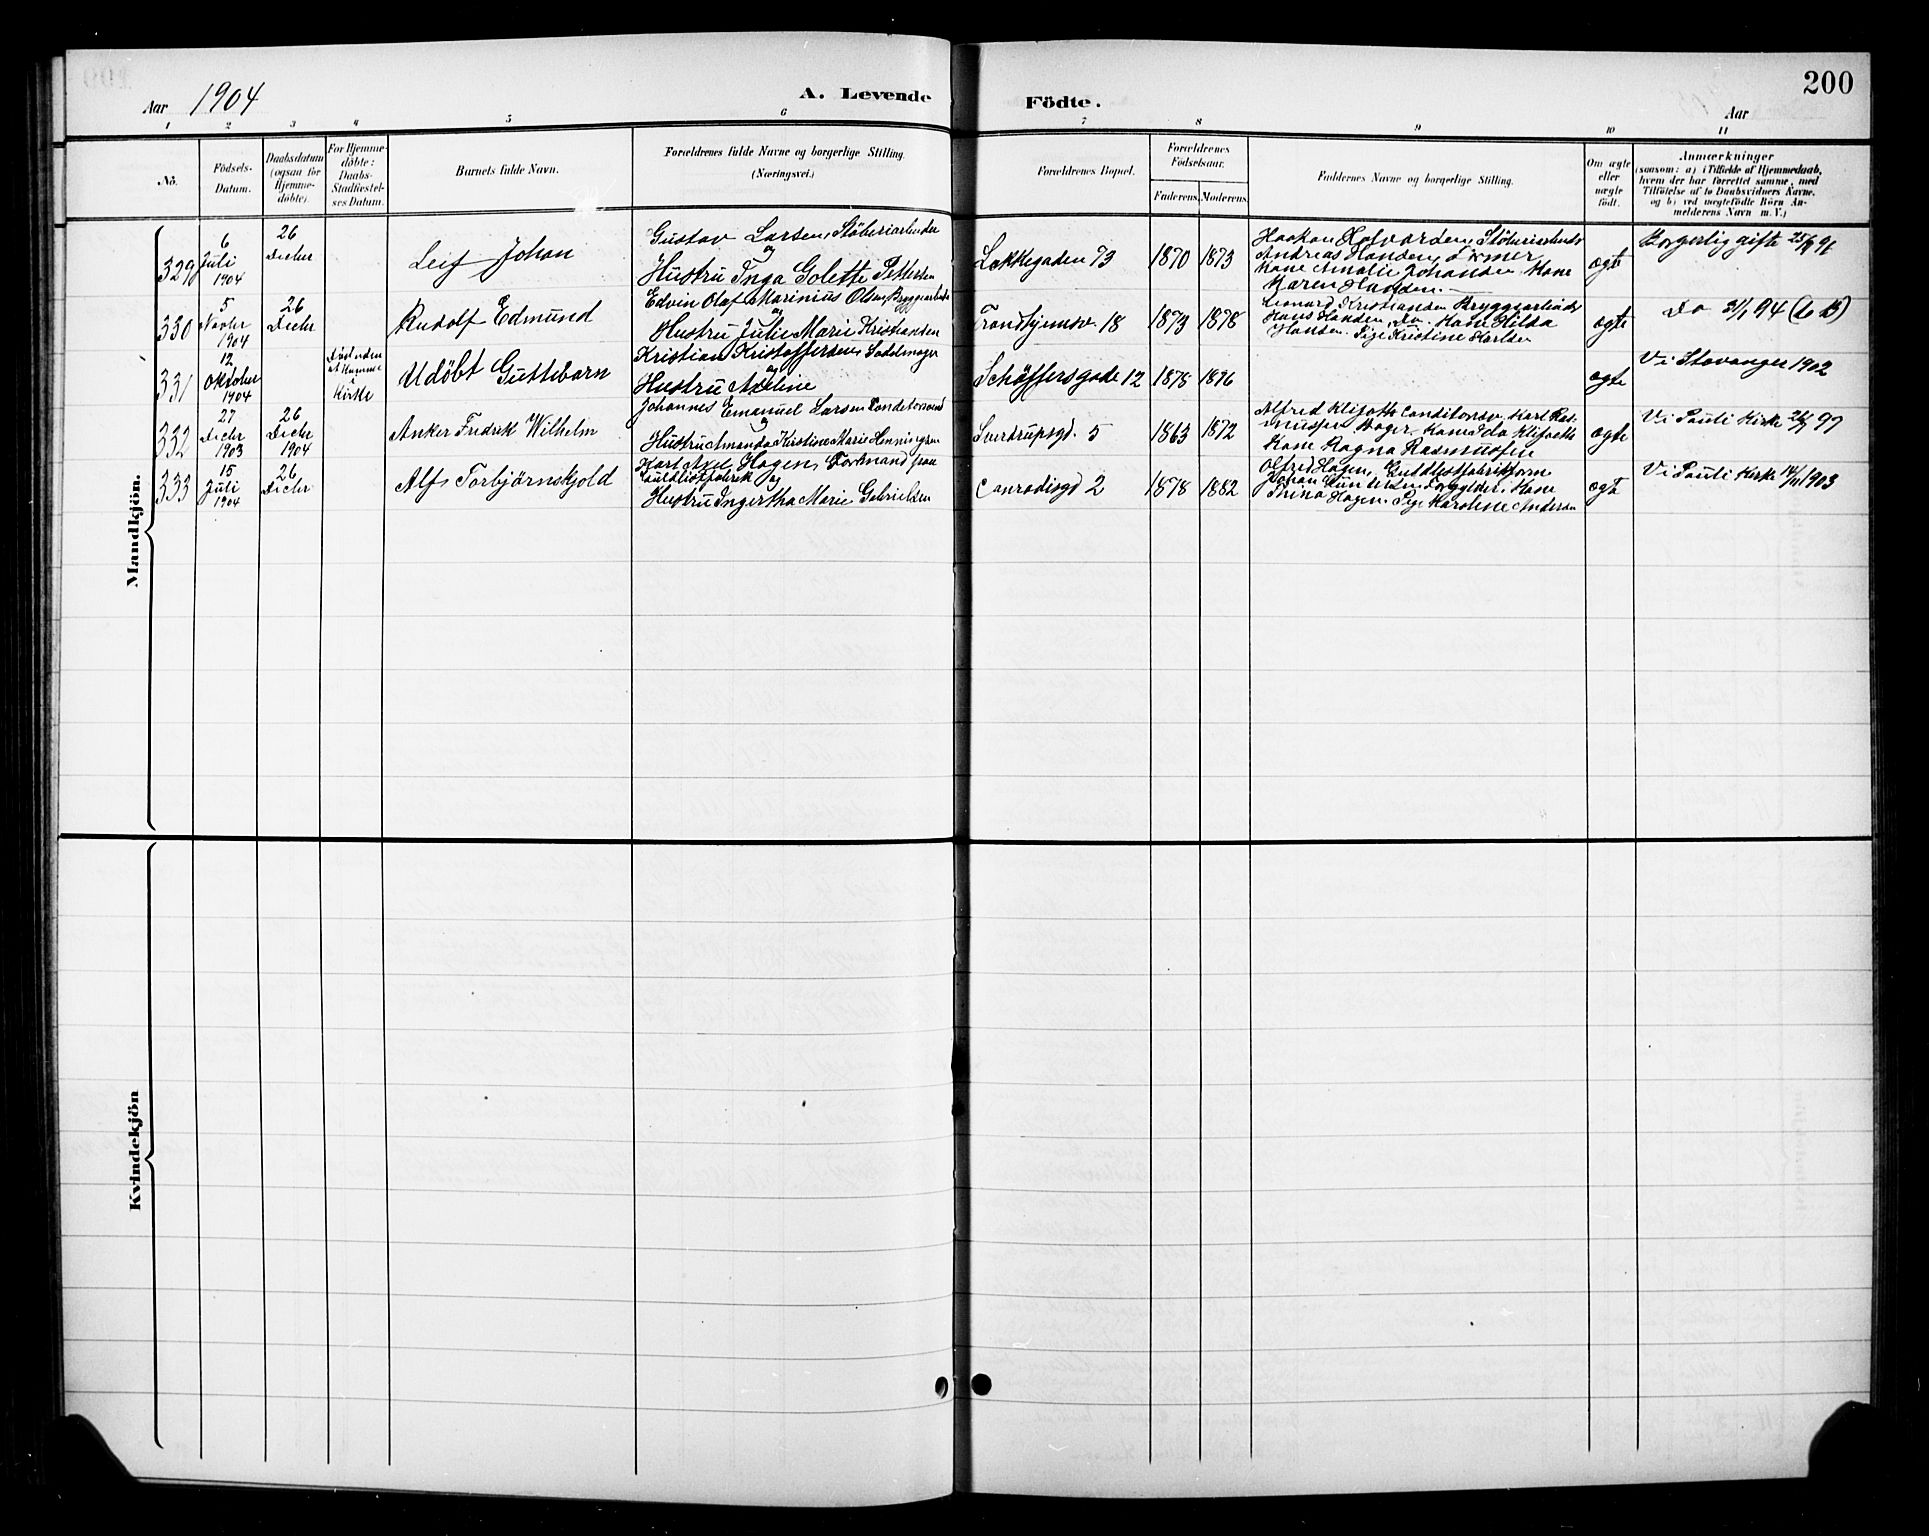 Aar 1904
A. Levende
Födte.
Aar
200
1 2 3 4 5 6 7 8 9 10 11
No.
Födsels-
Datum.
Daabsdatum
(ogsaa for
Hjemme-
döbte).
For Hjemme-
döbte:
Daabs-
Stadfæstel-
ses Datum.
Barnets fulde Navn.
Forældrenes fulde Navne og borgerlige Stilling.
(Næringsvei.)
Forældrenes Bopæl.
Forældrenes
Födselsaar.
Faderens.
Moderens.
Faddernes Navne og borgerlige Stilling.
Om ægte
eller
uægte
født.
Anmærkninger
(saasom: a) i Tilfælde af Hjemmedaab,
hvem der har forrettet samme, med
Tilföielse af to Daabsvidners Navne.
og b) ved uægtefødte Börn An-
melderens Navn m. V.)
Mandkjön.
329
6
Juli
1904
26
Decbr
Leif Johan
Gustav Larsen, Støberiarbeider
og
Hustru Inga Golette Pettersen
Løkkegaden 73
1870
1873
Haakon Halvorsen, Støberiarbeider
Andreas Hansen, Former
Kone Amalie Johansen, Kone
Karen Hansen.
ægte
Borgerlig gifte 25/9 96
330
5
Novbr
1904
26
Decbr
Rudolf Edmund
Edvin Olaf Marinius Olsen, Bryggearbeider
og
Hustru Julie Marie Kristiansen
Trondhjemsv. 18
1873
1878
Leonard Kristiansen Bryggearbeider
Hans Hansen, Do. Kone Hilda
Hansen. Pige Kristine Karlsen
ægte
Do 31/1 94
331
12
Oktober
1904
Død uden
at komme
i
Kirke
Udöbt Guttebarn
Kristian Kristoffersen, Sadelmager
og
Hustru
Schöffersgade 12
1878
1876
ægte
Vi Stavanger 1902
332
27
Decbr
1903
26
Decbr
1904
Anker Fredrik Wilhelm
Johannes Emanuel Larsen Konditorsvend
og
Hustru Amanda Kristine Marie Henningsen
Sverdrupsgd. 5
1863
1872
Alfred Klifoth Conditorsv, Karl Ras-
mussen Bager, Kone Ida Klifoth
Kone Ragna Rasmussen
ægte
Vi Pauli Kirke 97
333
15
Juli
1904
26
Decbr
Alf Torbjörnskjold
Karl Axel Hagen, Formand paa
Guldlistfabrik og
Hustru Ingertha Marie Gabrielsen
Conradisgd 2
1878
1882
Alfred Hagen, Guldlistfabrikform
Johan Gundersen, Forgylder, Kone
Trina Hagen, Pige Karoline Andersen
ægte
Vi Pauli Kirke 14/11 1903
Kvindekjön